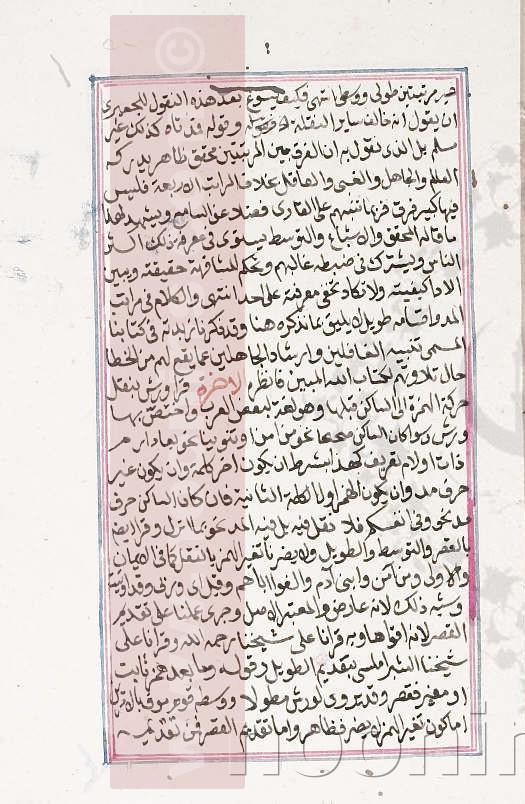 غير مرتبتين طولى ووسطى انتهى فكيف يسوغ بعد هذه النقول للجعبرى
ان يقول انه خالف ساير النقلة وقوله قدناه كذلك غير
مسلم بل الذى نقول به ان الفرق بين المرتبتين محقق ظاهر يدركه
العالم والجاهل والغبى والعاقل بخلاف المراتب الاربعة فليس
فيها كبير فرق فربما تنبهم على القارى فضلا عن السامع ويشهد لهذا
ما قاله المحقق والاشباع والتوسط يستوى فى معرفة ذلك اكثر
الناس ويشترك فى ضبطه غالبهم وتحكم المشافهة حقيقته ويبين
الاداء كيفيته ولا تكاد تخفى معرفته على احد انتهى والكلام فى مراتب
المد واقسامه طويل لا يليق بما نذكره هنا وقد ذكرنا زبدته فى كتابنا
المسمى تنبيه الغافلين وارشاد الجاهلين عما يقع لهم من الخطا
حال تلاوتهم لكتاب الله المبين فانظره والاخرة قرا ورش بنقل
حركة الهمزة الى الساكن قبلها وهو لغة لبعض العرب واختص بها
ورش سواكان الساكن صحيحا نحو من امن او تنوينا نحو بعاد ارم
ذات او لام تعريف كهذا بشرط ان يكون اخر كلمة وان يكون غير
حرف مد وان يكون الهمز اول الكلمة الثانية فان كان الساكن حرف
مد نحو وفى انفسكم فلا نقل فيه بل فيه المد نحو بما انزل وقرا ايضا
بالقصر والتوسط والطويل ولا يضرنا تغير الهمز بالنقل كما فى الايمان
والاولى ومن آمن وابنى آدم والفوا اباهم وقل اى وربى وقد اوتيت
وشبه ذلك لانه عارض والمعتبر الاصل وجرى عملنا على تقديم
القصر لانه اقواها وبه قرانا على شيخنا رحمه الله وقرانا على
شيخنا الشبراملسى بتقديم الطويل وقوله وما بعد همز ثابت
او مغير فقصر وقد يروى لورش مطولا ووسطه قوم
اما كون تغير الهمز لا يضر فظاهر واما تقديم القصر فمن تقديمه